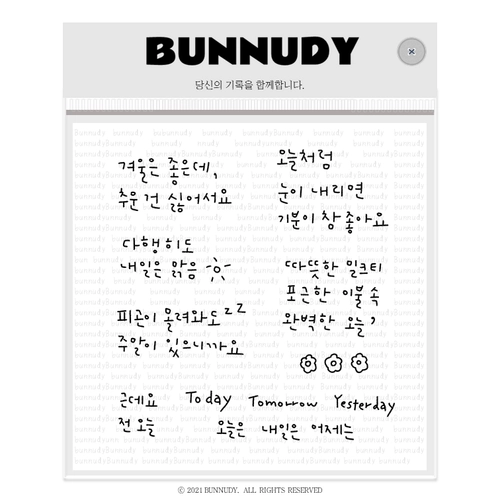 BUNNUDY
당신의 기록을 함께합니다.
겨울은 좋은데,
추운 건 싫어서요
오늘처럼
눈이 내리면
기분이 참 좋아요
다행히도
내일은 맑음
따뜻한 밀크티
포근한 이불 속
완벽한 오늘,
피곤이 몰려와도 zz
주말이 있으니까요
근데요
Today
Tomorrow
Yesterday
전 오늘
오늘은
내일은
어제는
© 2021 BUNNUDY. ALL RIGHTS RESERVED